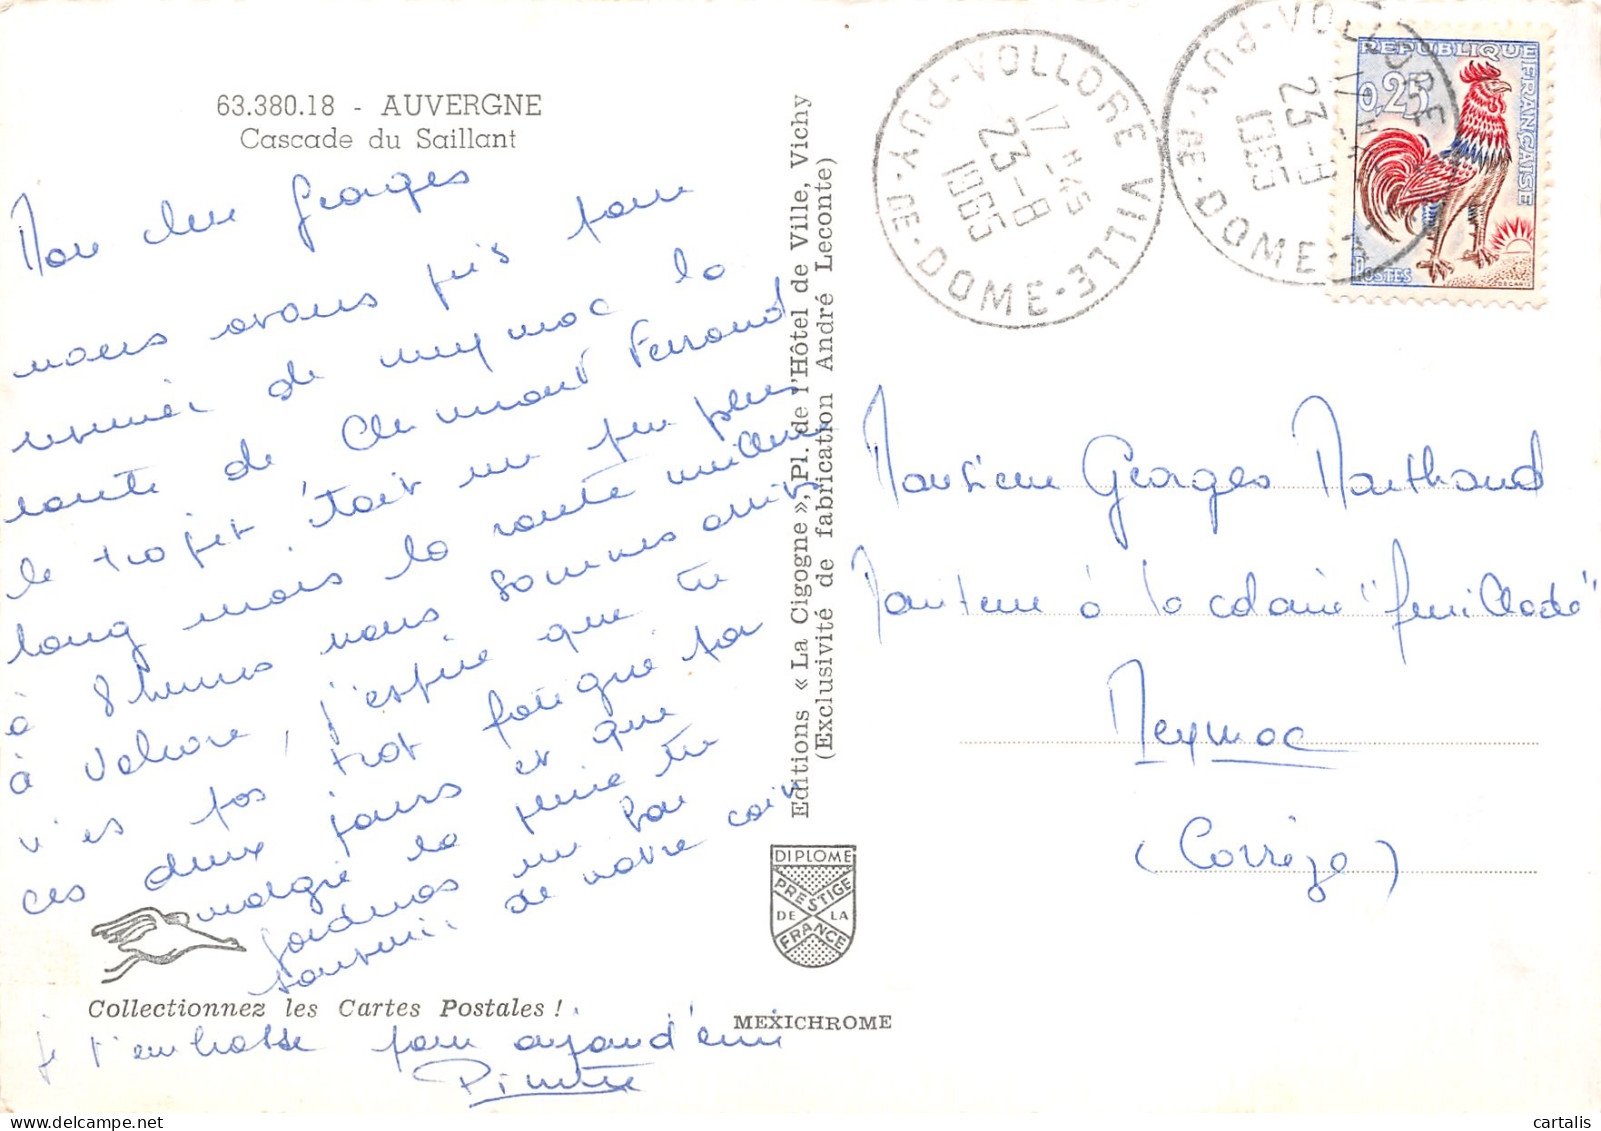 63.380.18 - AUVERGNE
Cascade du Saillant
Mon cher Georges
nous avons pris pour
revenir de meymac la
route de Clermont Ferrand
le trajet était un peu plus
long mais la route meilleure
à 8 heures nous sommes arrivés
à Volore, j'espère que tu
n'es pas trop fatigué par
ces deux jours et que
malgré la pluie tu
garderas un bon
souvenir de notre coin
Collectionnez les Cartes Postales !
je t'embrasse pour aujourd'hui
Editions « La Cigogne », Pl. de l'Hôtel de Ville, Vichy
(Exclusivité de fabrication André Leconte)
DIPLOME
PRESTIGE
DE LA
FRANCE
MEXICHROME
VOLLORE VILLE · PUY-DE-DOME
17 H 45
23-8
1965
VOLLORE
PUY-DE-DOME
17 H
23-8
1965
REPUBLIQUE FRANÇAISE
0,25
POSTES
DECARIS
Monsieur Georges Monthaud
Moniteur à la colonie "feuillade"
Meymac
(Corrèze)
cartalis